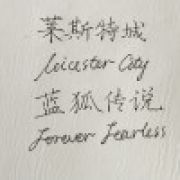 莱斯特城
Leicester City
蓝狐传说
Forever Fearless